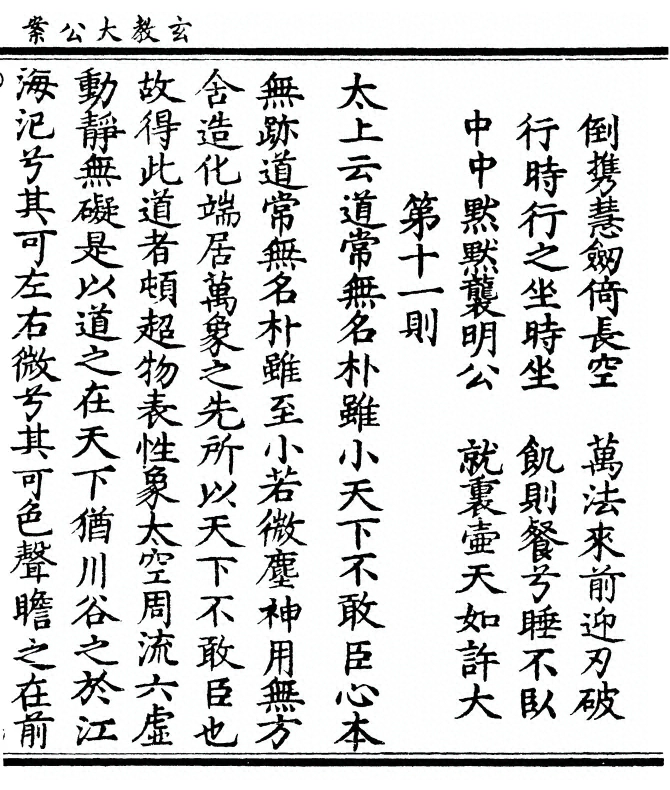 玄教大公案
倒携慧劒倚長空　萬法來前迎刃破
行時行之坐時坐　飢則餐兮睡不臥
中中默默襲明公　就裏壷天如許大
第十一則
太上云道常無名朴雖小天下不敢臣心本
無跡道常無名朴雖至小若微塵神用無方
舍造化端居萬象之先所以天下不敢臣也
故得此道者頓超物表性象太空周流六虛
動靜無礙是以道之在天下猶川谷之於江
海汜兮其可左右微兮其可色聲瞻之在前